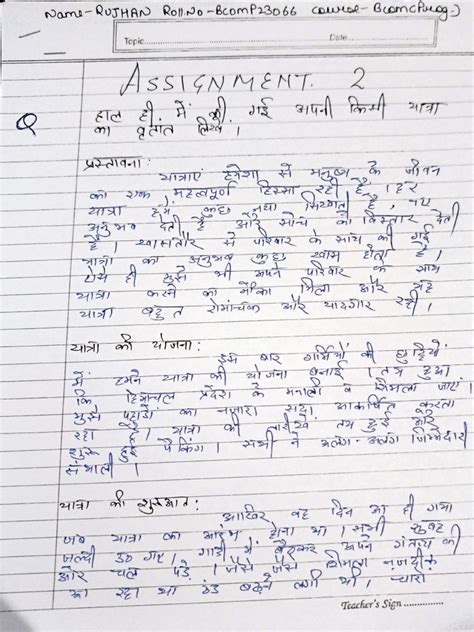 Name- RUJHAN Roll.No - BcomP23066 course- Bcom(Prog.)
Topic
Date
ASSIGNMENT. 2
Q हाल ही में की गई अपनी किसी यात्रा
का वृतांत लिखें ।
प्रस्तावना :
यात्राएं हमेशा से मनुष्य के जीवन
का एक महत्वपूर्ण हिस्सा रही है । हर
यात्रा हमें कुछ नया सिखाती है , नए
अनुभव देती है और सोच को विस्तार देती
है । खासतौर से परिवार के साथ की गई
यात्रा का अनुभव कुछ खास होता है ।
ऐसे ही मुझे भी अपने परिवार के साथ
यात्रा करने का मौका मिला और यह
यात्रा बहुत रोमांचक और यादगार रही ।
यात्रा की योजना :
इस बार गर्मियों की छुट्टियों
में हमने यात्रा की योजना बनाई । तय हुआ
कि हिमाचल प्रदेश के मनाली व शिमला जाएं
मुझे पहाड़ों का नजारा सदा आकर्षित करता
रहा है । यात्रा की तारीख तय हुई और
शुरू हुई पैकिंग । सभी ने अलग-अलग जिम्मेदारी
संभाली ।
यात्रा की शुरुआत :
आखिर वह दिन आ ही गया
जब यात्रा का आरंभ होना था । सभी सुबह
जल्दी उठ गए । गाड़ी में बैठकर अपने गंतव्य की
और चल पड़े । जैसे जैसे शिमला नजदीक
आ रहा था ठंड बढ़ने लगी थी । चारो
Teacher's Sign